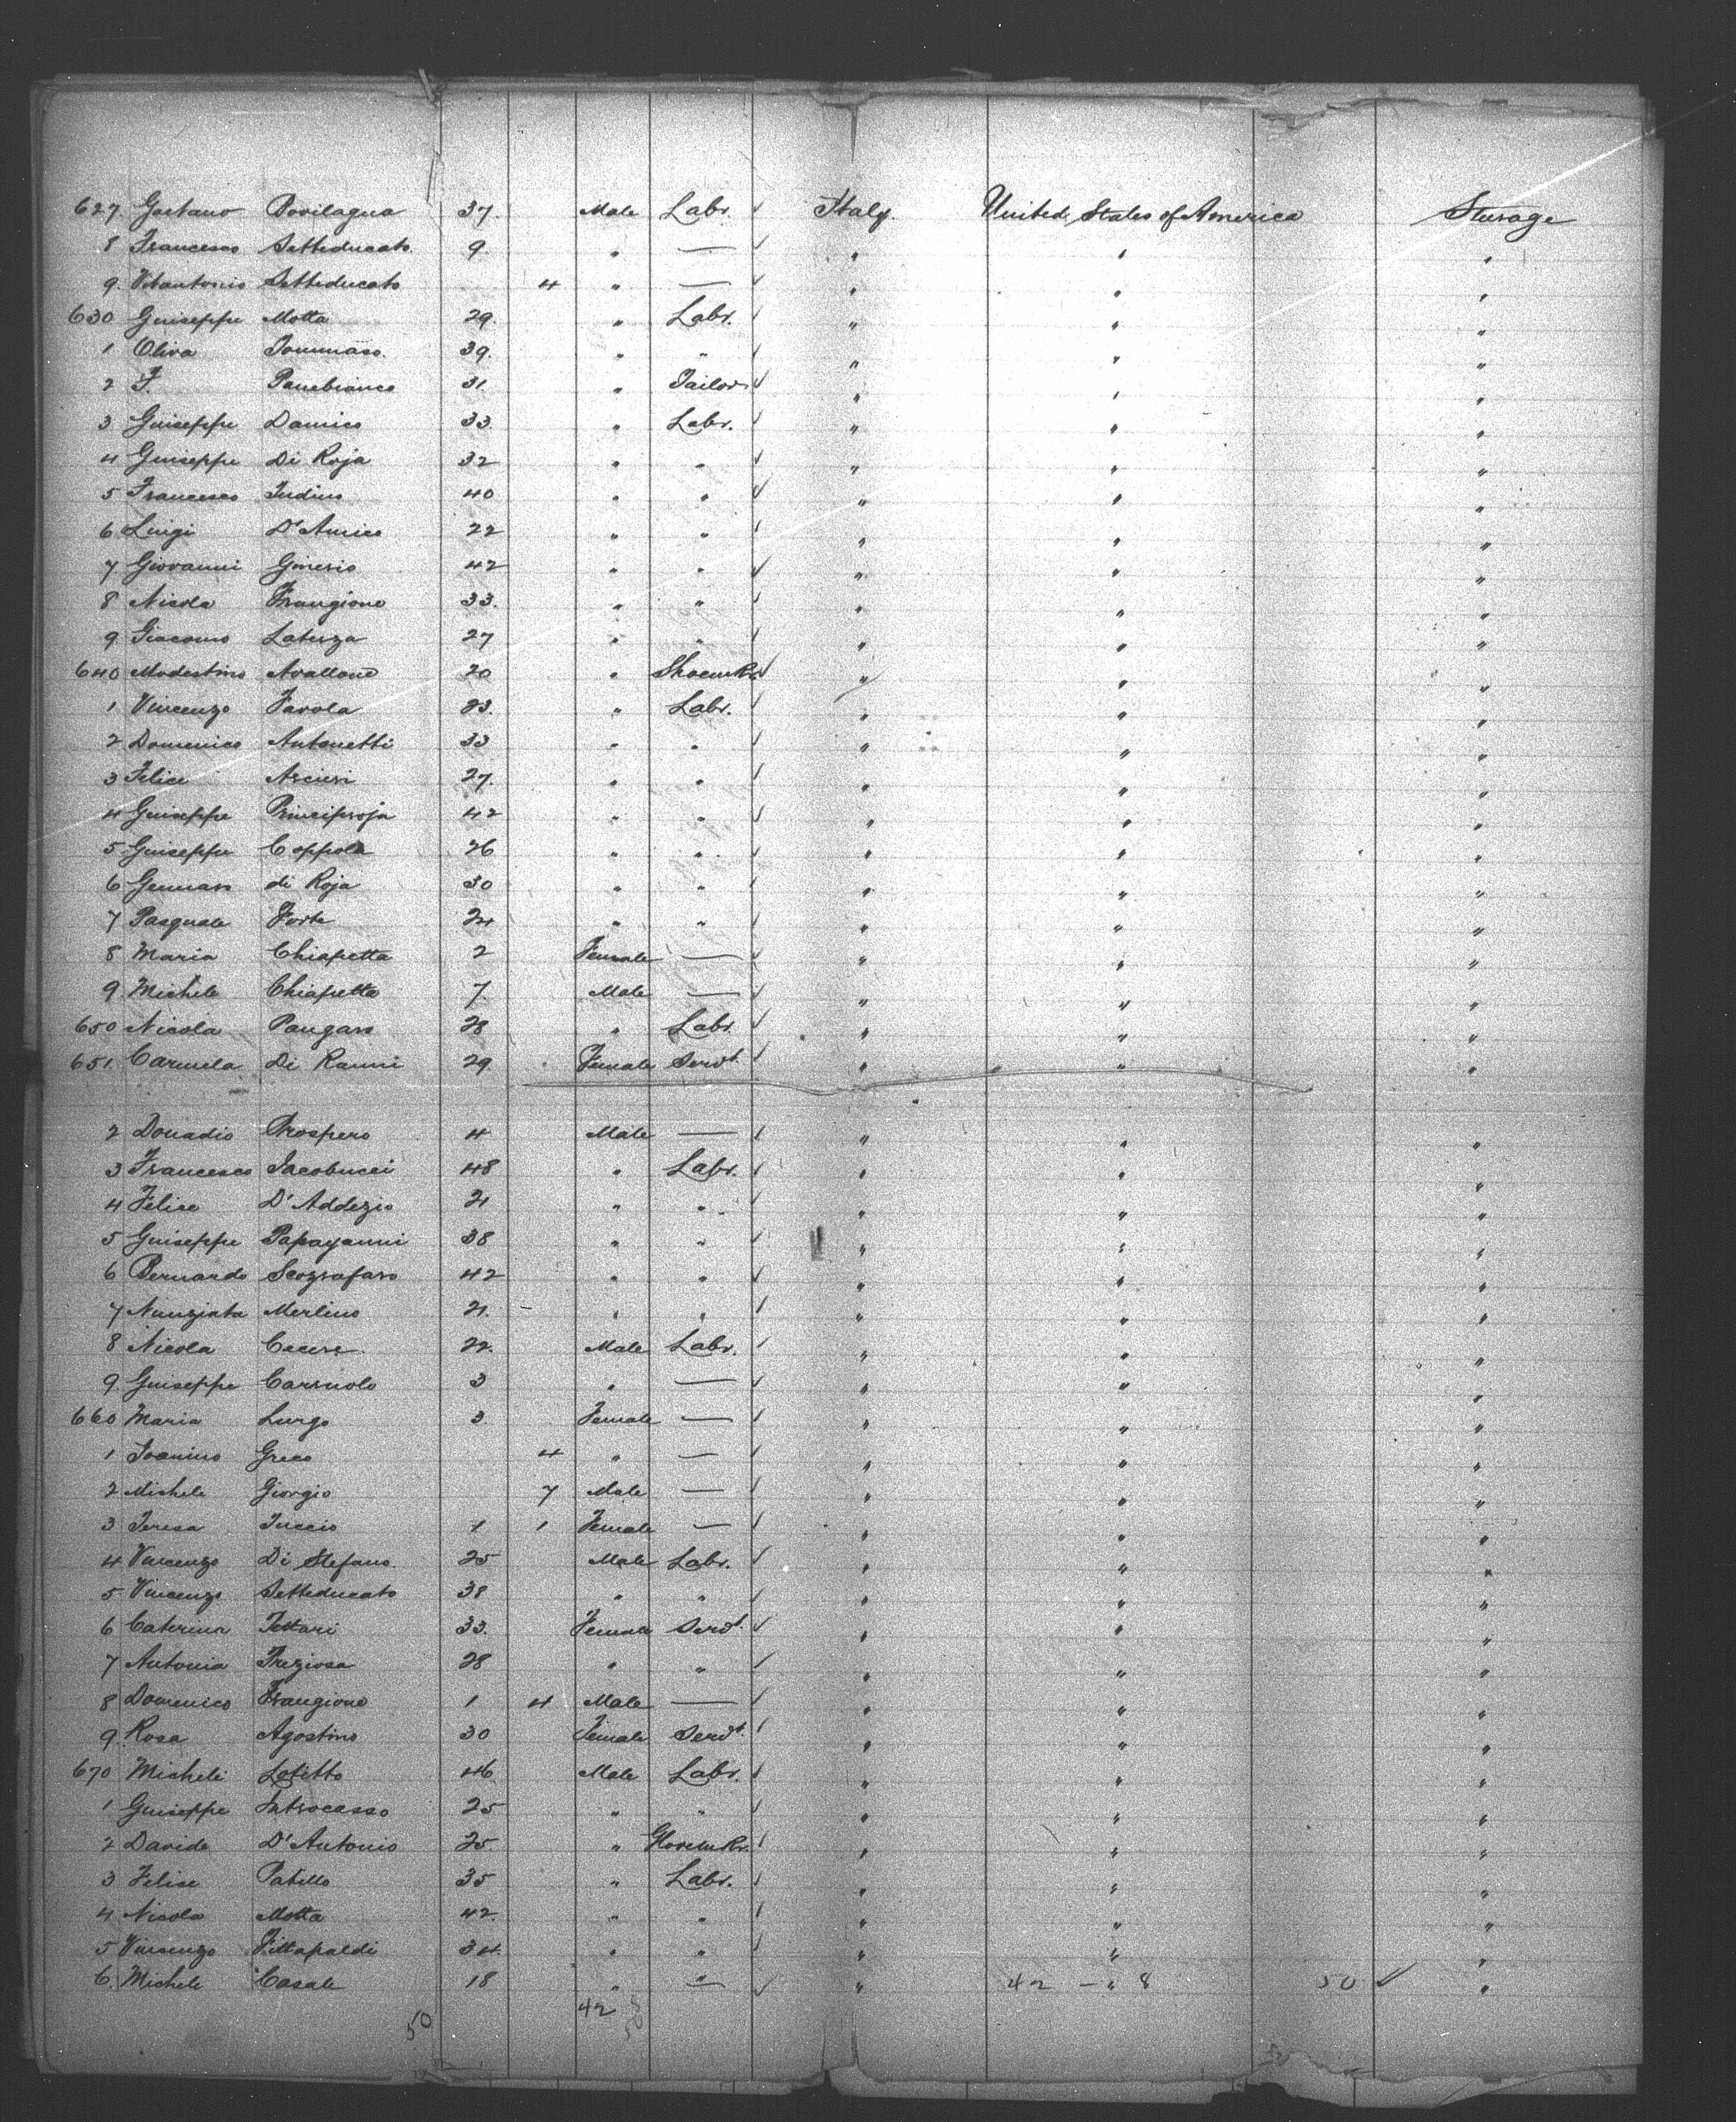 627. Gaetano Bovilagua 37. Male Labr. ✓ Italy. United States of America Steerage
8 Francesco Setteducato. 9. " — ✓ " " "
9. Vitantonio Setteducato 4 " — ✓ " " "
630 Guiseppe Motta 29. " Labr. ✓ " " "
1 Oliva Tommaso. 39. " " ✓ " " "
2 F. Panebianco 31. " Tailor ✓ " " "
3 Guiseppe Damico 33. " Labr. ✓ " " "
4 Guiseppe Di Roja 32 " " ✓ " " "
5 Francesco Iudino 40 " " ✓ " " "
6 Luigi D'Amico 22 " " ✓ " " "
7 Giovanni Ginerio 42 " " ✓ " " "
8 Nicola Frangione 33. " " ✓ " " "
9 Giacomo Laterza 27 " " ✓ " " "
640 Modestino Avallone 20 " Shoemkr. ✓ " " "
1 Vincenzo Favola 23. " Labr. ✓ " " "
2 Domenico Antonetti 33 " " ✓ " " "
3 Felice Arcieri 27. " " ✓ " " "
4 Guiseppe Principroja 42 " " ✓ " " "
5 Guiseppe Coppola 26 " " ✓ " " "
6 Gennaro di Roja 30 " " ✓ " " "
7 Pasquale Forte 24 " " ✓ " " "
8 Maria Chiapetta 2 Female — ✓ " " "
9. Michele Chiapetta 7. Male — ✓ " " "
650 Nicola Pangaro 28 " Labr. ✓ " " "
651. Carmela Di Ranni 29. Female Servt. ✓ " " "
2 Donadio Prospero 4 Male — ✓ " " "
3 Francesco Iacobucci 48 " Labr. ✓ " " "
4 Felice D'Addezio 21 " " ✓ " " "
5 Guiseppe Papayanni 38 " " ✓ " " "
6 Bernardo Scozrafaro 42 " " ✓ " " "
7 Nunziata Merlino 21. - " " ✓ " " "
8 Nicola Cacere. 22. Male Labr. ✓ " " "
9. Guiseppe Carnuolo 3 " — ✓ " " "
660 Maria Lurgo 3. Female — ✓ " " "
1 Ioanino Greco 4 " — ✓ " " "
2 Michele Giorgio 7 Male — ✓ " " "
3 Teresa Tuccio 1 1 Female — ✓ " " "
4 Vincenzo Di Stefano. 25 Male Labr. ✓ " " "
5 Vincenzo Setteducato 38 " " ✓ " " "
6 Caterina Tettari 33. Female Servt. ✓ " " "
7 Antonia Preziosa 28 " " ✓ " " "
8 Domenico Frangione 1 4 Male — ✓ " " "
9 Rosa Agostino 30 Female Servt. ✓ " " "
670 Michele Lofitto 46. Male Labr. ✓ " " "
1 Guiseppe Introcasso 25 " " ✓ " " "
2 Davide D'Antonio 25. " Glovemkr. ✓ " " "
3 Felice Patello 35 " Labr. ✓ " " "
4 Nicola Motta 42. " " ✓ " " "
5 Vincenzo Fittapaldi 34. " " ✓ " " "
6. Michele Casale 18 " " ✓ " 42 - " 8 50 ✓ "
50 42